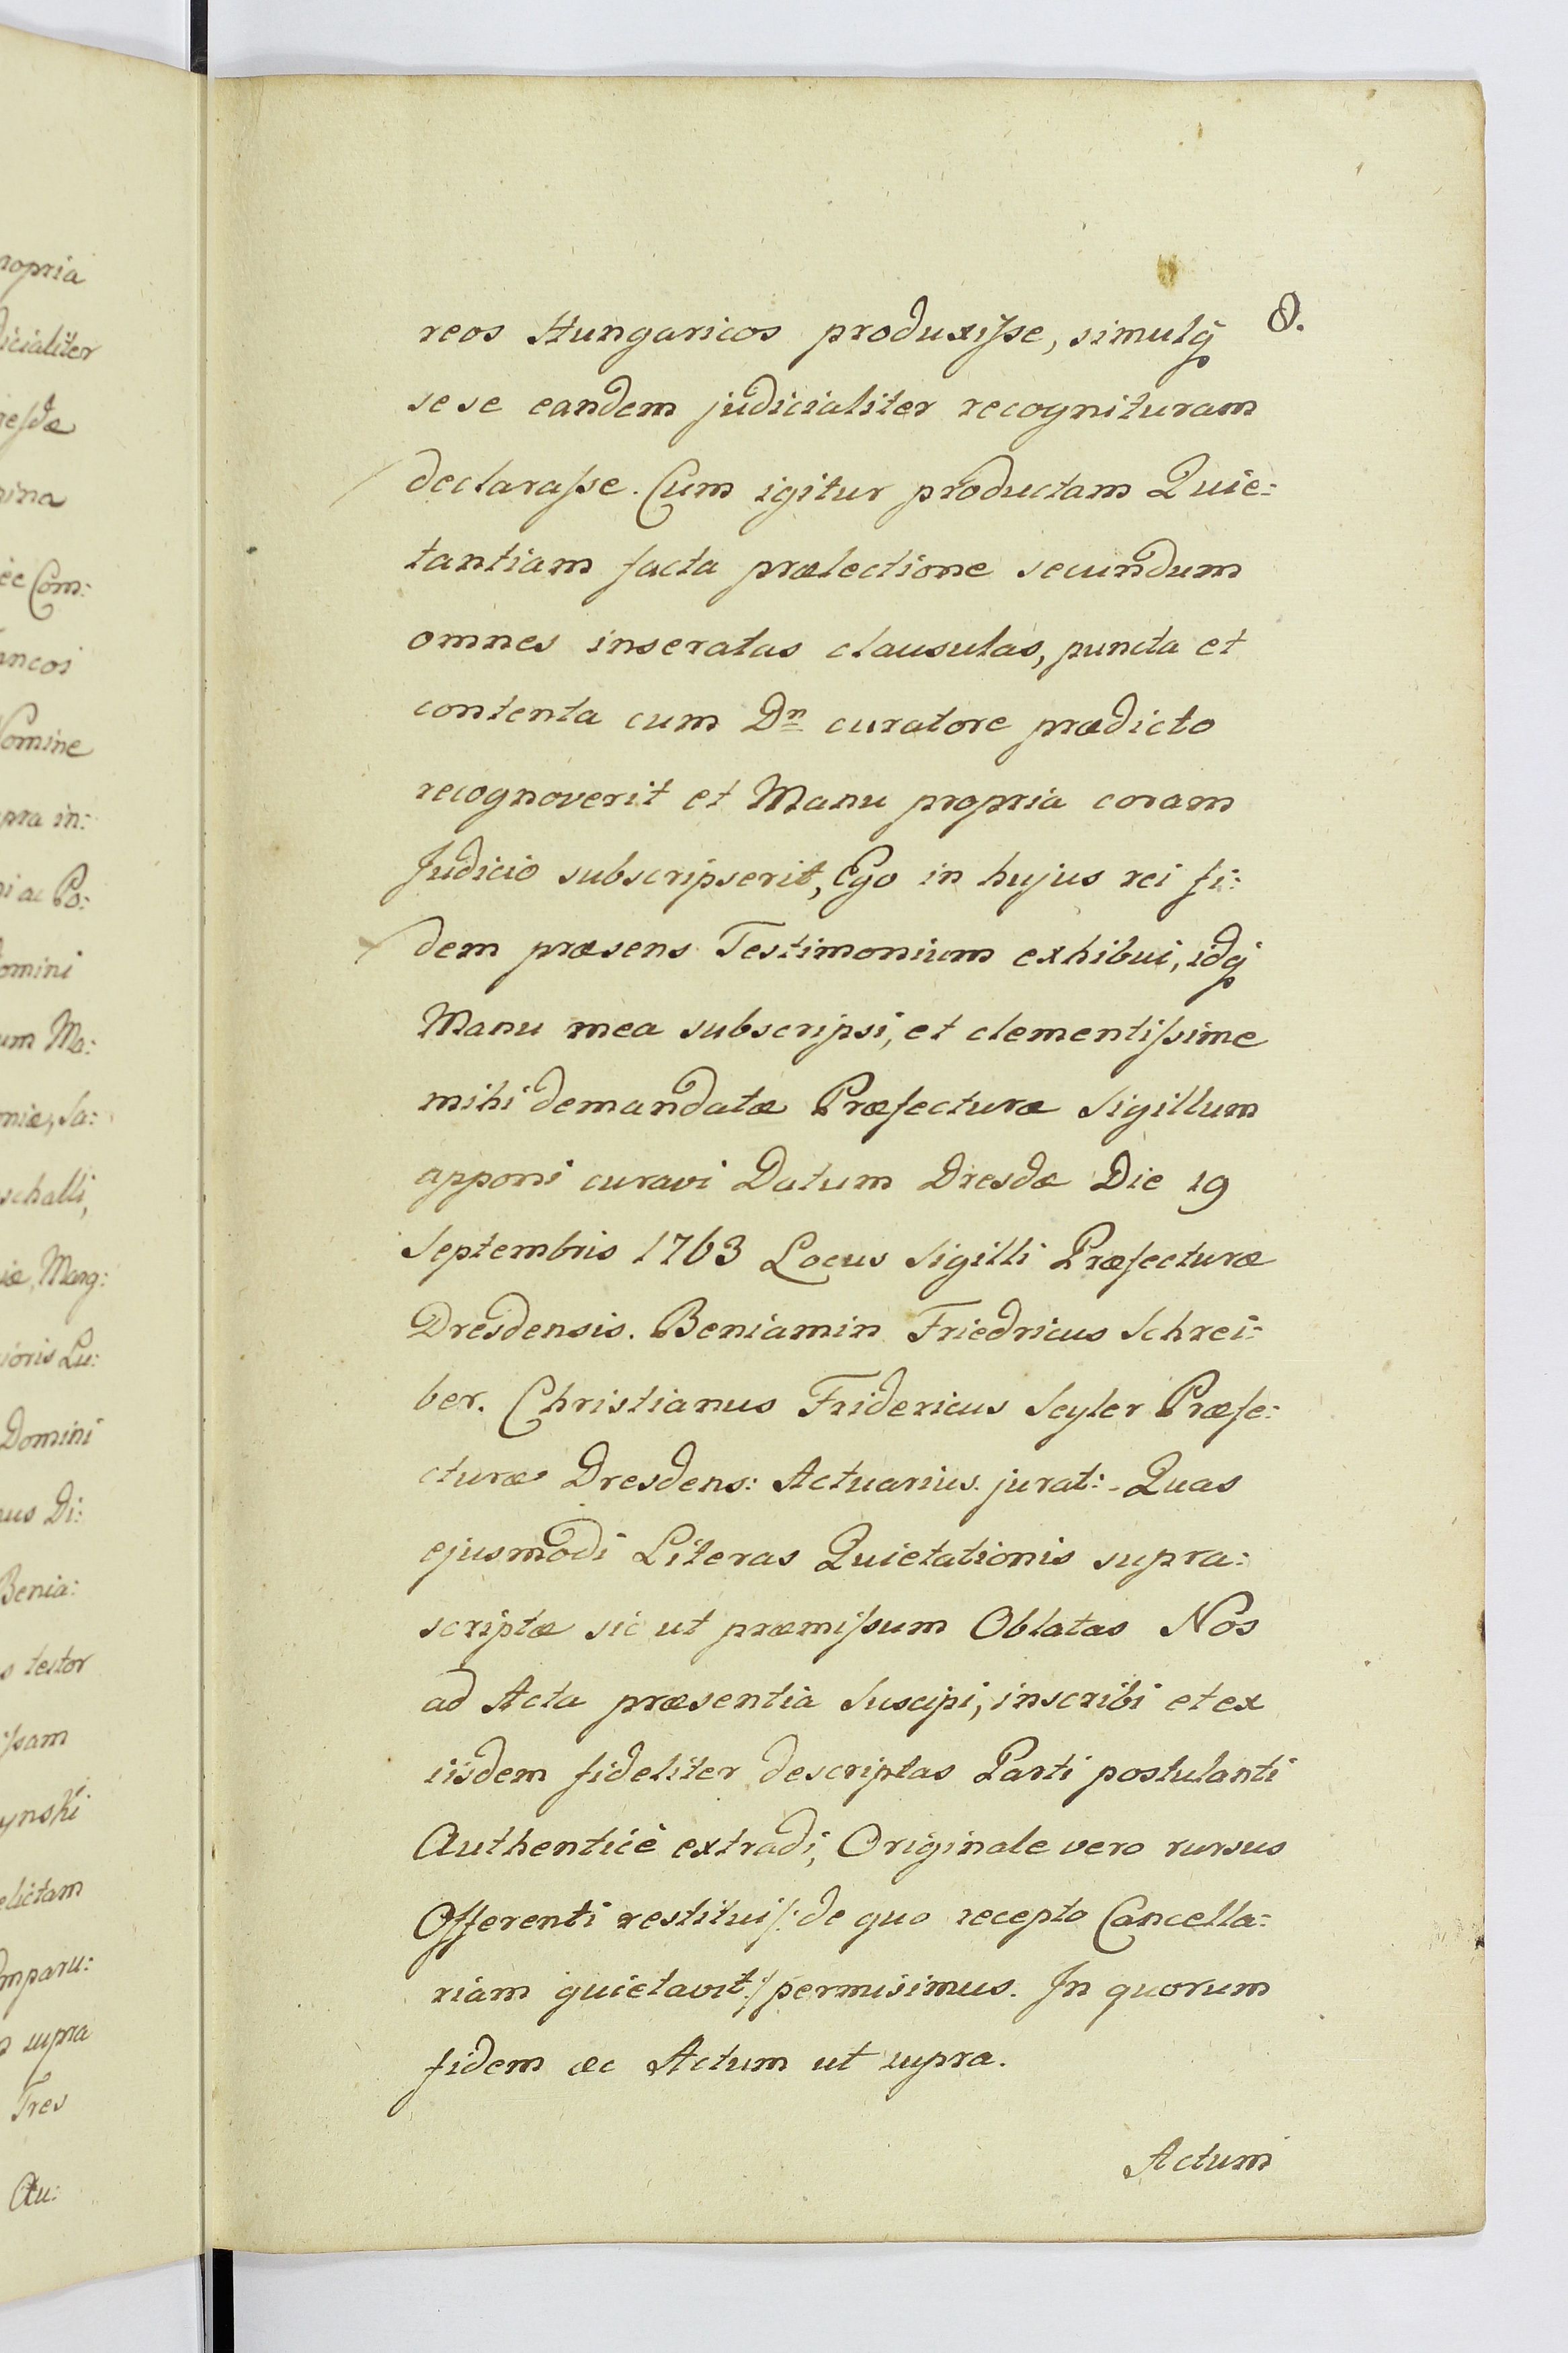 ropria
dicialiter
resdæ
mina
ec Com:
ancos
Nomine
pra in:
ni ac Po:
Domini
um Ma:
niæ, Sa:
schalli,
iæ, Marg:
ioris Lu:
Domini
us Di:
Benia:
s testor
issam
ynski
elictam
ompary:
supra
Tres
Au:
8.
reos Hungaricos produxisse, simulq
sese eandem judicialiter recognituram
declarasse. Cum igitur productam Quie:
tantiam facta prælectione secundum
omnes inseratas clausulas, puncta et
contenta cum Dn curatore prædicto
recognoverit et Manu propria coram
Judicio subscripserit, Ego in hujus rei fi:
dem præsens Testimonium exhibui, idq
Manu mea subscripsi, et clementissime
mihi demandatæ Præfecturæ Sigillum
apponi curavi Datum Dresdæ Die 19
Septembris 1763 Locus Sigilli Præfecturæ
Dresdensis. Beniamin Friedricus Schrei:
ber. Christianus Fridericus Seyler Præfe:
cturæ Dresdens: Actuarius. jurat: - Quas
ejusmodi Literas Quietationis supra:
scriptæ sic ut præmissum Oblatas Nos
ad Acta præsentia Suscipi, inscribi et ex
iisdem fideliter descriptas Parti postulanti
Authenticè extradi, Originale vero rursus
Offerenti restitui /: de quo recepto Cancella:
riam quietavit :/ permisimus. In quorum
fidem æc Actum ut supra.
Actum